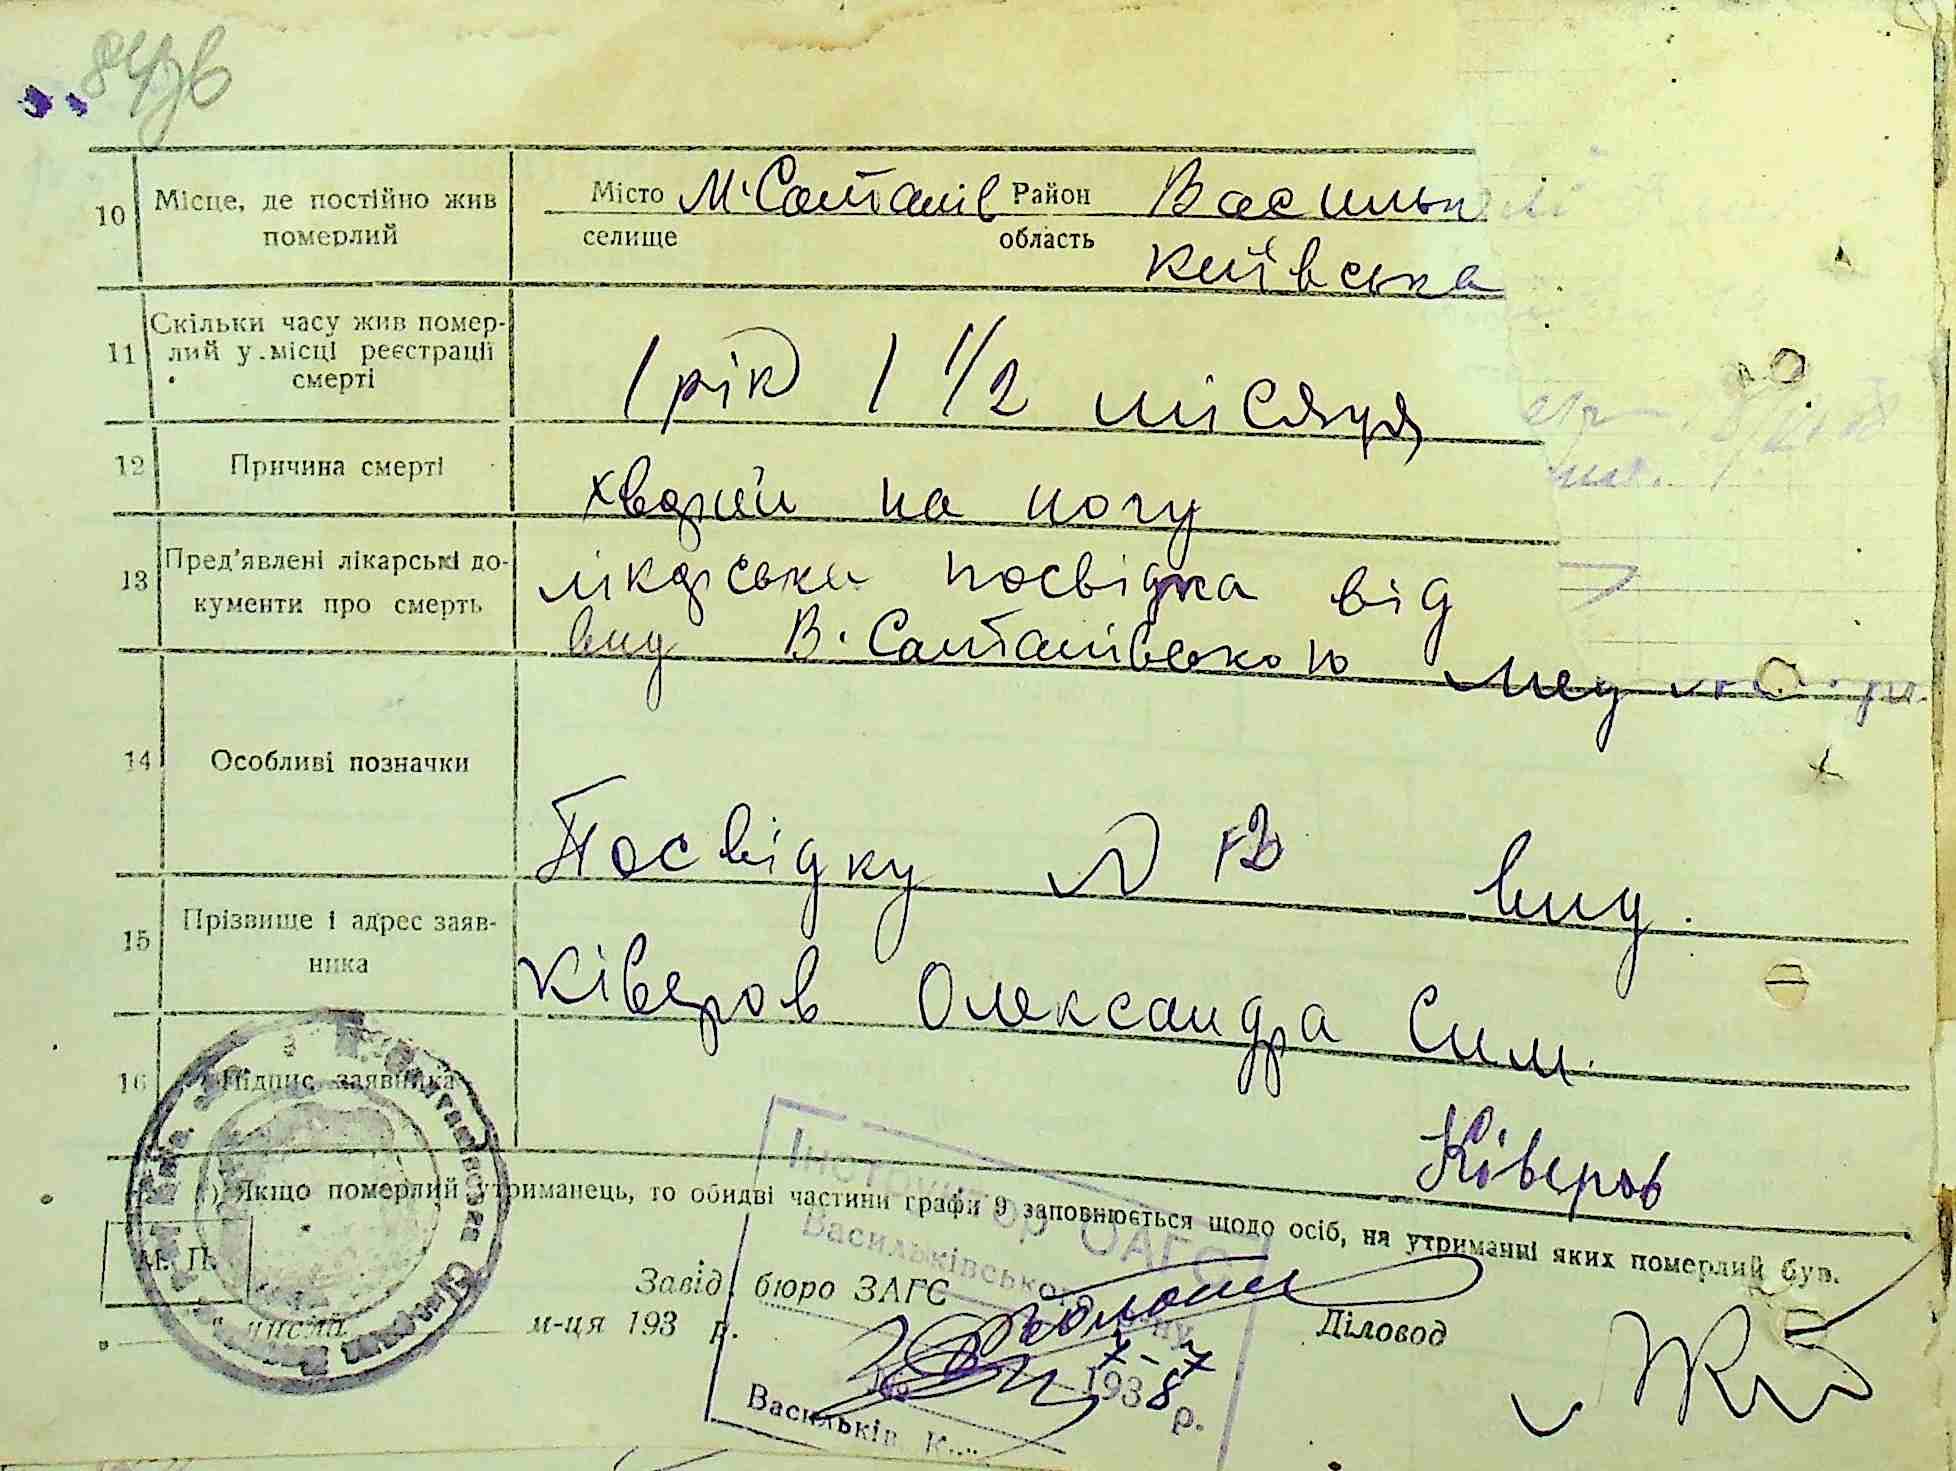 10 Місце, де постійно жив Місто М. Салтанів Район
померлий селище область
Київська
11 Скільки часу жив помер-
лий у місці реєстрації
смерті
1 рік 1 1/2 місяця
12 Причина смерті хворий на ногу
13 Пред'явлені лікарські до- лікарська посвідка від
кументи про смерть вид В. Салтанівського мед
14 Особливі позначки
Посвідку вид.
15 Прізвище і адрес заяв-
ника
Ківеров Олександра Сим.
16 Підпис заявника
Ківеров
Якщо померлий утриманець, то обидві частини графи 9 заповнюється щодо осіб, на утриманні яких померлий був.
Інструктор ОАГС
Васильківського
М. П.
Завід. бюро ЗАГС
Діловод
" числа м-ця 193 р.
7-7
№ 1938 р.
Васильків